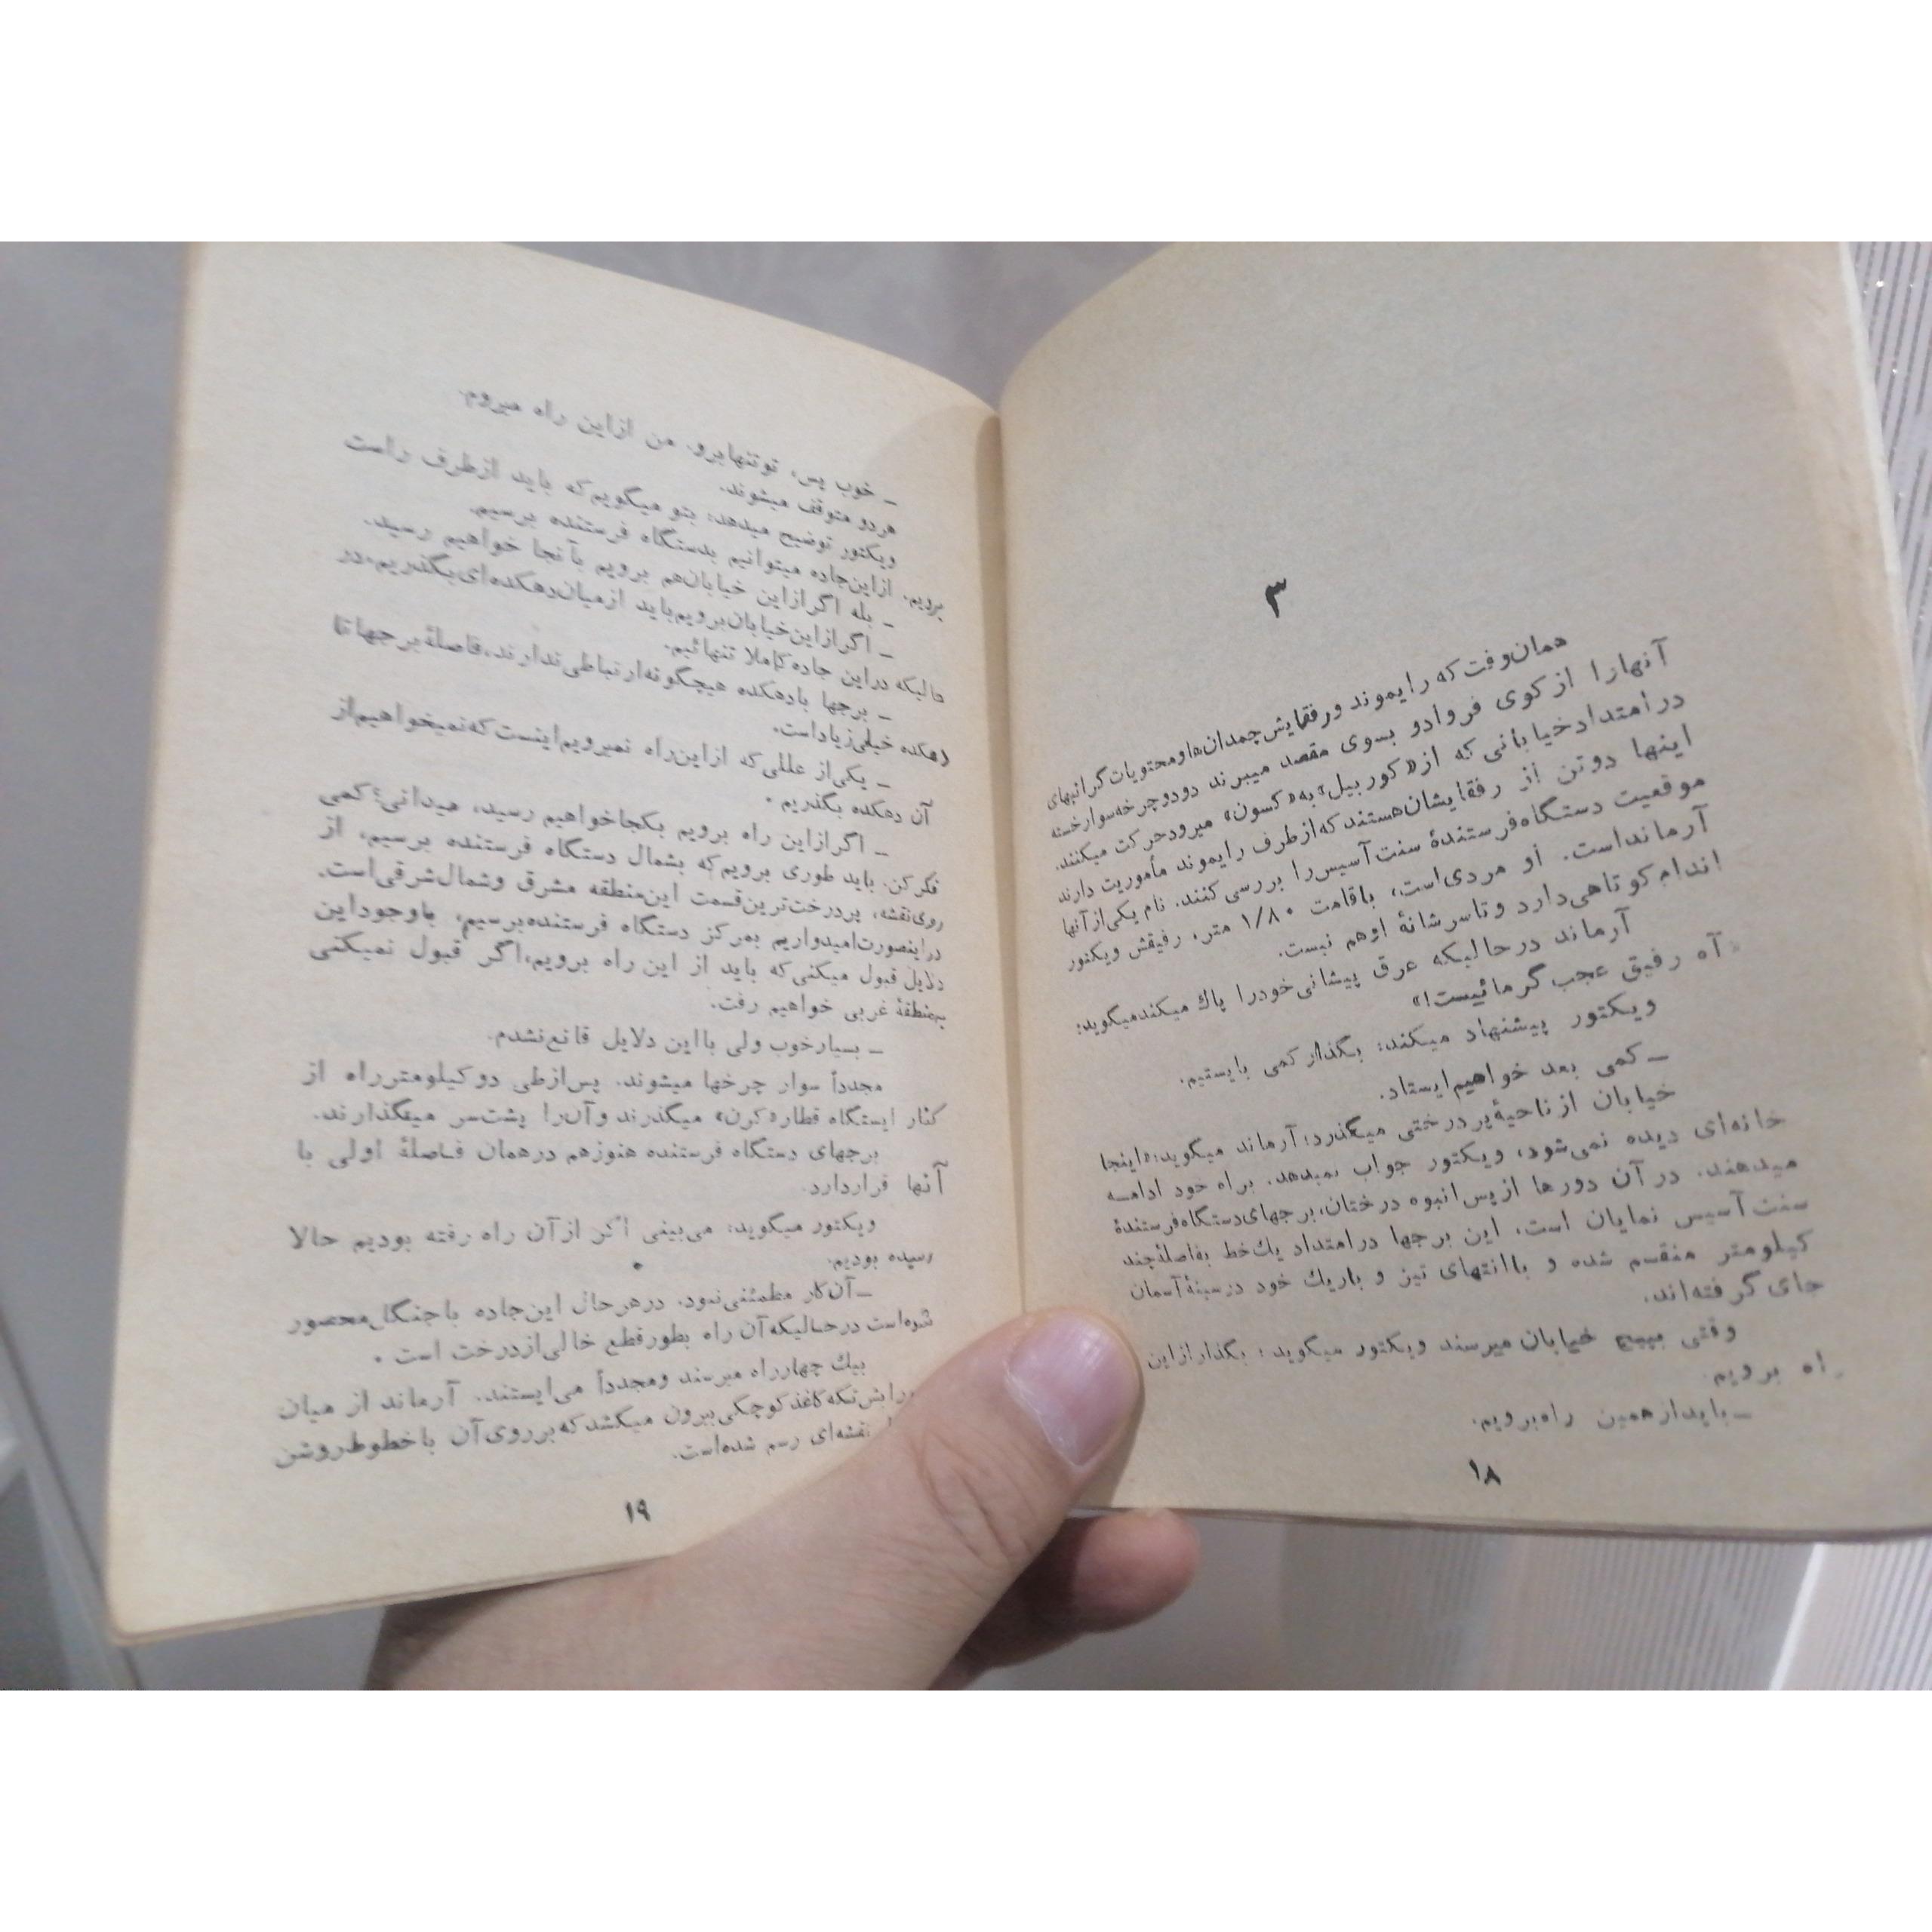 ۳
همان‌وقت که رایموند و رفقایش چمدان‌ها و محتویات گرانبهای
آنهارا از کوی فروادو بسوی مقصد میبرند دو دوچرخه‌سوار خسته
در امتداد خیابانی که از «کوربیل» به «کسون» میرود حرکت میکنند.
اینها دوتن از رفقایشان هستند که از طرف رایموند مأموریت دارند
موقعیت دستگاه فرستندهٔ سنت آسیس را بررسی کنند. نام یکی از آنها
آرماند است. او مردی است، باقامت ۱/۸۰ متر، رفیقش ویکتور
اندام کوتاهی دارد و تا سر شانهٔ اوهم نیست.
آرماند درحالیکه عرق پیشانی خودرا پاك میکند میگوید:
«آه رفیق عجب گرمائیست!»
ویکتور پیشنهاد میکند: بگذار کمی بایستیم.
ـ کمی بعد خواهیم ایستاد.
خیابان از ناحیهٔ پردرختی میگذرد؛ آرماند میگوید: «اینجا
خانه‌ای دیده نمی‌شود، ویکتور جواب نمیدهد. براه خود ادامه
میدهند. در آن دورها از پس انبوه درختان، برجهای دستگاه فرستندهٔ
سنت آسیس نمایان است، این برجها در امتداد یك خط بفاصلهٔ چند
کیلومتر منقسم شده و باانتهای تیز و باریك خود در سینهٔ آسمان
جای گرفته‌اند.
وقتی بپیچ خیابان میرسند ویکتور میگوید: بگذار از این
راه برویم.
ـ باید از همین راه برویم.
۱۸
ـ خوب پس، تو تنها برو. من ازاین راه میروم.
هردو متوقف میشوند.
ویکتور توضیح میدهد: بتو میگویم که باید ازطرف راست
برویم. ازاین جاده میتوانیم بدستگاه فرستنده برسیم.
ـ بله اگر ازاین خیابان هم برویم بآنجا خواهیم رسید.
ـ اگر ازاین خیابان برویم باید ازمیان دهکده‌ای بگذریم، در
حالیکه دراین جاده کاملا تنهائیم.
ـ برجها بادهکده هیچگونه ارتباطی ندارند، فاصلهٔ برجها تا
دهکده خیلی زیاد است.
ـ یکی از عللی که ازاین راه نمیرویم اینست که نمیخواهیم از
آن دهکده بگذریم.
ـ اگر ازاین راه برویم بکجا خواهیم رسید، میدانی؟ کمی
فکر کن. باید طوری برویم که بشمال دستگاه فرستنده برسیم، از
روی نقشه، پردرخت‌ترین قسمت این منطقه مشرق وشمال شرقی است.
دراینصورت امیدواریم بمرکز دستگاه فرستنده برسیم، باوجود این
دلایل قبول میکنی که باید از این راه برویم، اگر قبول نمیکنی
بمنطقهٔ غربی خواهیم رفت.
ـ بسیار خوب ولی بااین دلایل قانع نشدم.
مجدداً سوار چرخها میشوند. پس‌ازطی دو کیلومتر راه از
کنار ایستگاه قطار «کرن» میگذرند و آن‌را پشت‌سر میگذارند.
برجهای دستگاه فرستنده هنوزهم درهمان فاصلهٔ اولی با
آنها قراردارد.
ویکتور میگوید: می‌بینی اگر ازآن راه رفته بودیم حالا
رسیده بودیم.
ـ آن کار مطمئنی نبود. درهرحال این جاده باجنگل محصور
شده‌است درحالیکه آن راه بطور قطع خالی ازدرخت است.
بیك چهارراه میرسند ومجدداً می‌ایستند. آرماند از میان
تکه کاغذ کوچکی بیرون میکشد که بر روی آن باخطوط روشن
نقشه‌ای رسم شده‌است.
۱۹